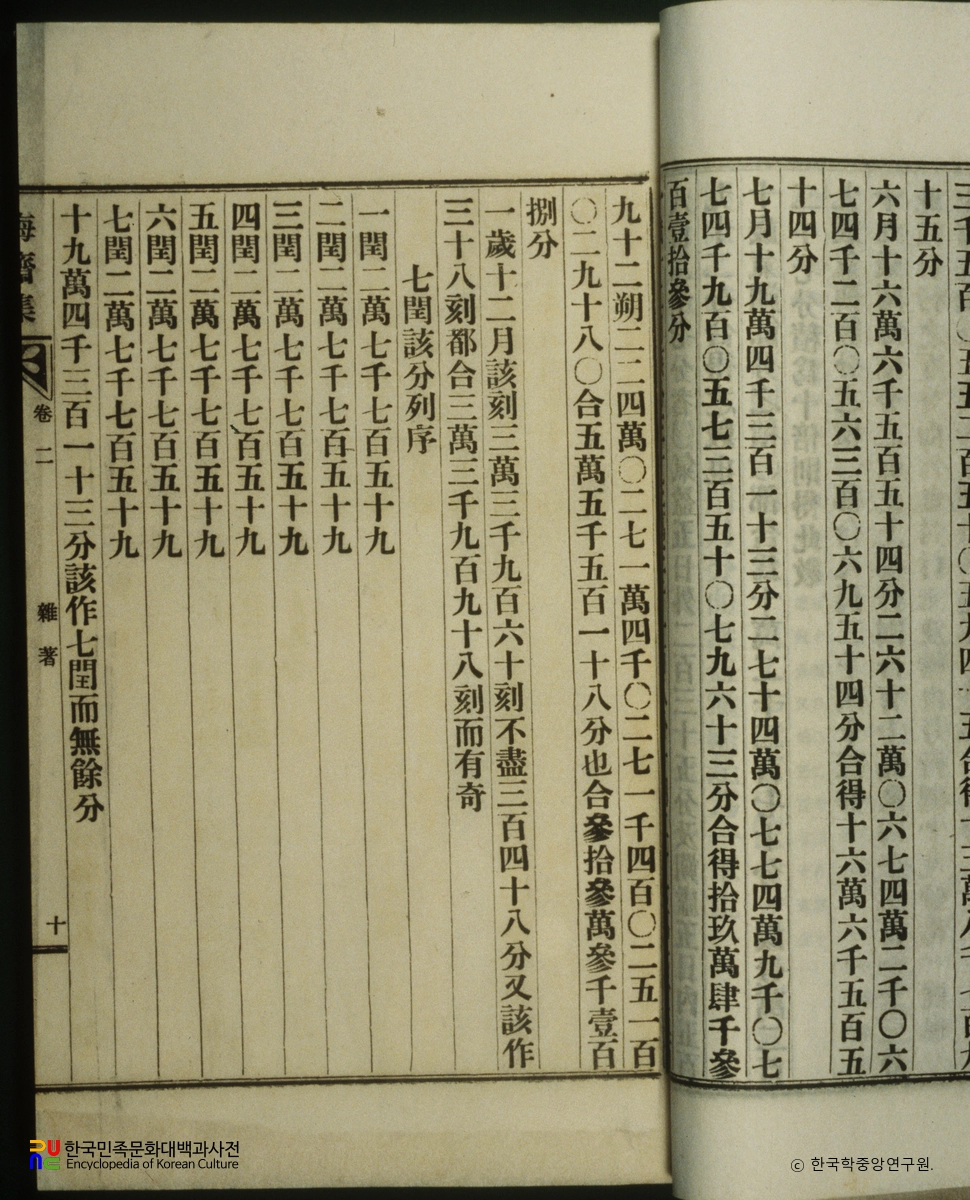 十五分
六月十六萬六千五百五十四分二六十二萬〇六七四萬二千〇六
七四千二百〇五六三百〇六九五十四分合得十六萬六千五百五
十四分
七月十九萬四千三百一十三分二七十四萬〇七七四萬九千〇七
七四千九百〇五七二百五十〇七九六十三分合得拾玖萬肆千參
百壹拾參分
九十二朔二二四萬〇二七一萬四千〇二七一千四百〇二五一百
〇二九十八〇合五萬五千五百一十八分也合參拾參萬參千壹百
捌分
一歲十二月該刻三萬三千九百六十刻不盡三百四十八分又該作
三十八刻都合三萬三千九百九十八刻而有奇
七閏該分列序
一閏二萬七千七百五十九
二閏二萬七千七百五十九
三閏二萬七千七百五十九
四閏二萬七千七百五十九
五閏二萬七千七百五十九
六閏二萬七千七百五十九
七閏二萬七千七百五十九
十九萬四千三百一十三分該作七閏而無餘分
卷二
雜著
十
한국민족문화대백과사전
Encyclopedia of Korean Culture
ⓒ 한국학중앙연구원.